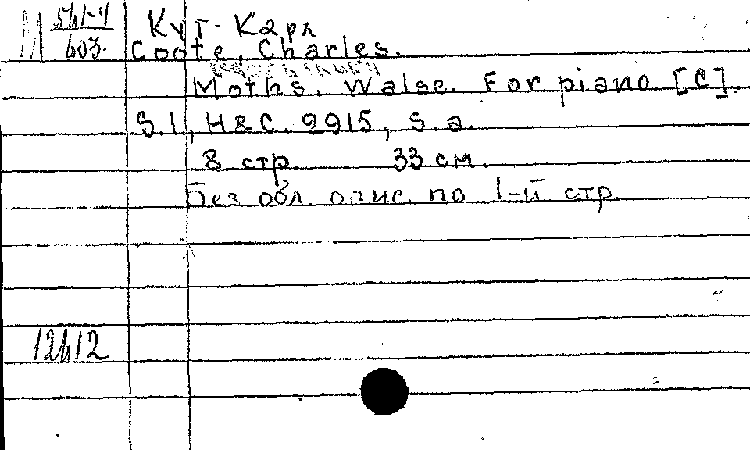 М 541-4
603.
Кут-Карл
Coote, Charles.
Moths. Walse. For piano [C].
S.l., H&C. 9915, s.a.
8 стр. 33 см.
Без обл. опис. по 1-й стр.